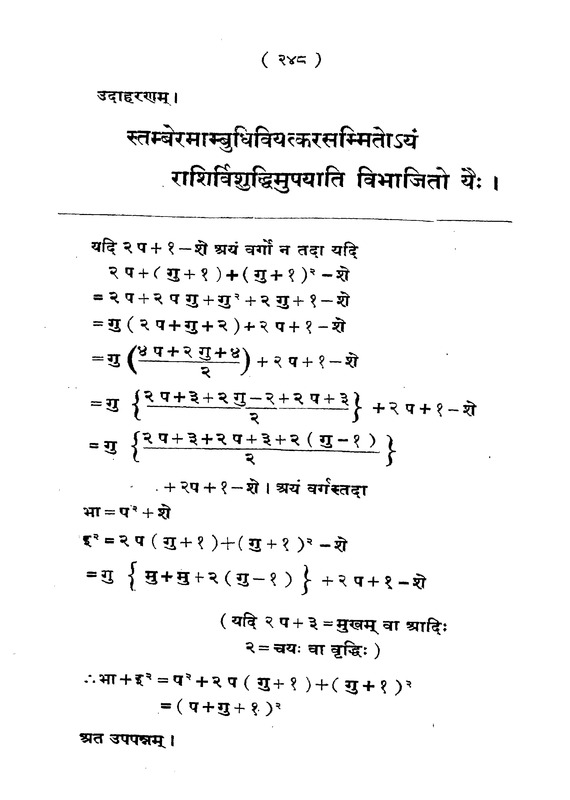 ( २४८ )
उदाहरणम् ।
स्तम्बेरमाम्बुधिवियत्करसम्मितोऽयं
राशिर्विशुद्धिमुपयाति विभाजितो यैः ।
यदि २ प + १ – शे अयं वर्गो न तदा यदि
२ प + ( गु + १ ) + ( गु + १ )² – शे
= २ प + २ प गु + गु² + २ गु + १ – शे
= गु ( २ प + गु + २ ) + २ प + १ – शे
= गु (४ प + २ गु + ४ / २) + २ प + १ – शे
= गु {२ प + ३ + २ गु – २ + २ प + ३ / २} + २ प + १ – शे
= गु {२ प + ३ + २ प + ३ + २ ( गु – १ ) / २}
+ २प + १ – शे । अयं वर्गस्तदा
भा = प² + शे
इ² = २ प ( गु + १ ) + ( गु + १ )² – शे
= गु { मु + मु + २ ( गु – १ ) } + २ प + १ – शे
( यदि २ प + ३ = मुखम् वा आदिः
२ = चयः वा वृद्धिः )
∴ भा + इ² = प² + २ प ( गु + १ ) + ( गु + १ )²
= ( प + गु + १ )²
अत उपपन्नम् ।